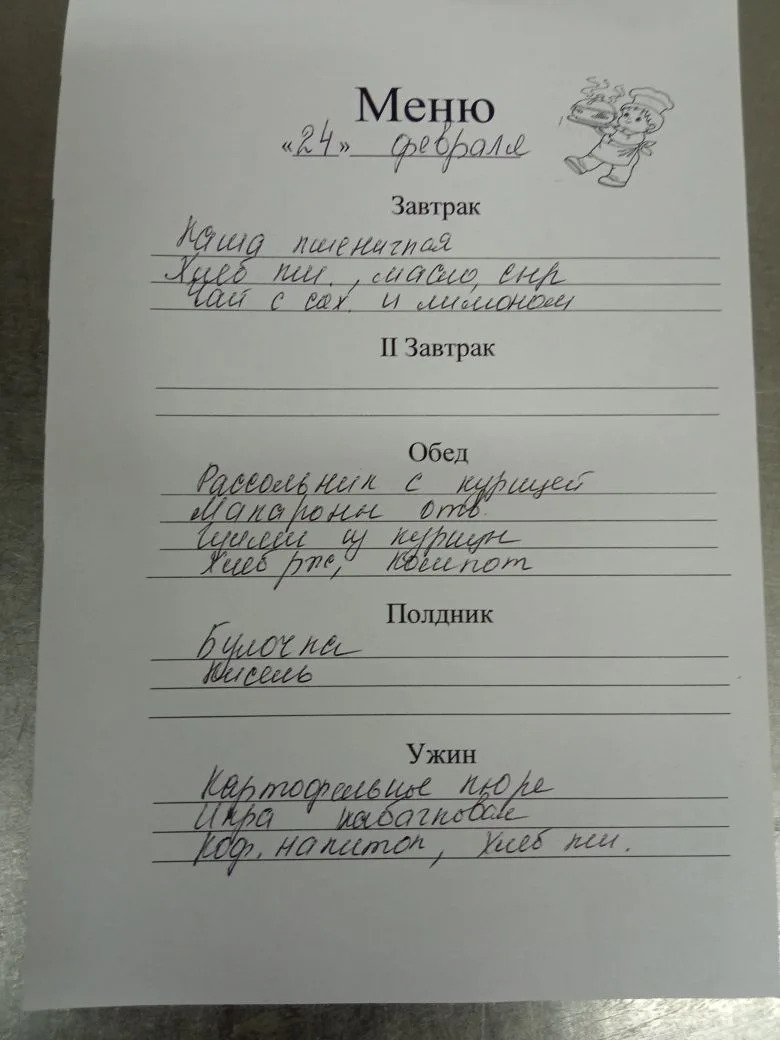 Меню
«24» февраля
Завтрак
Каша пшеничная
Хлеб пш., масло, сыр
Чай с сах. и лимоном
II Завтрак
Обед
Рассольник с курицей
Макароны отв.
из курицы
Хлеб рж, компот
Полдник
Булочка
Кисель
Ужин
Картофельное пюре
Икра кабачковая
Коф. напиток, хлеб пш.